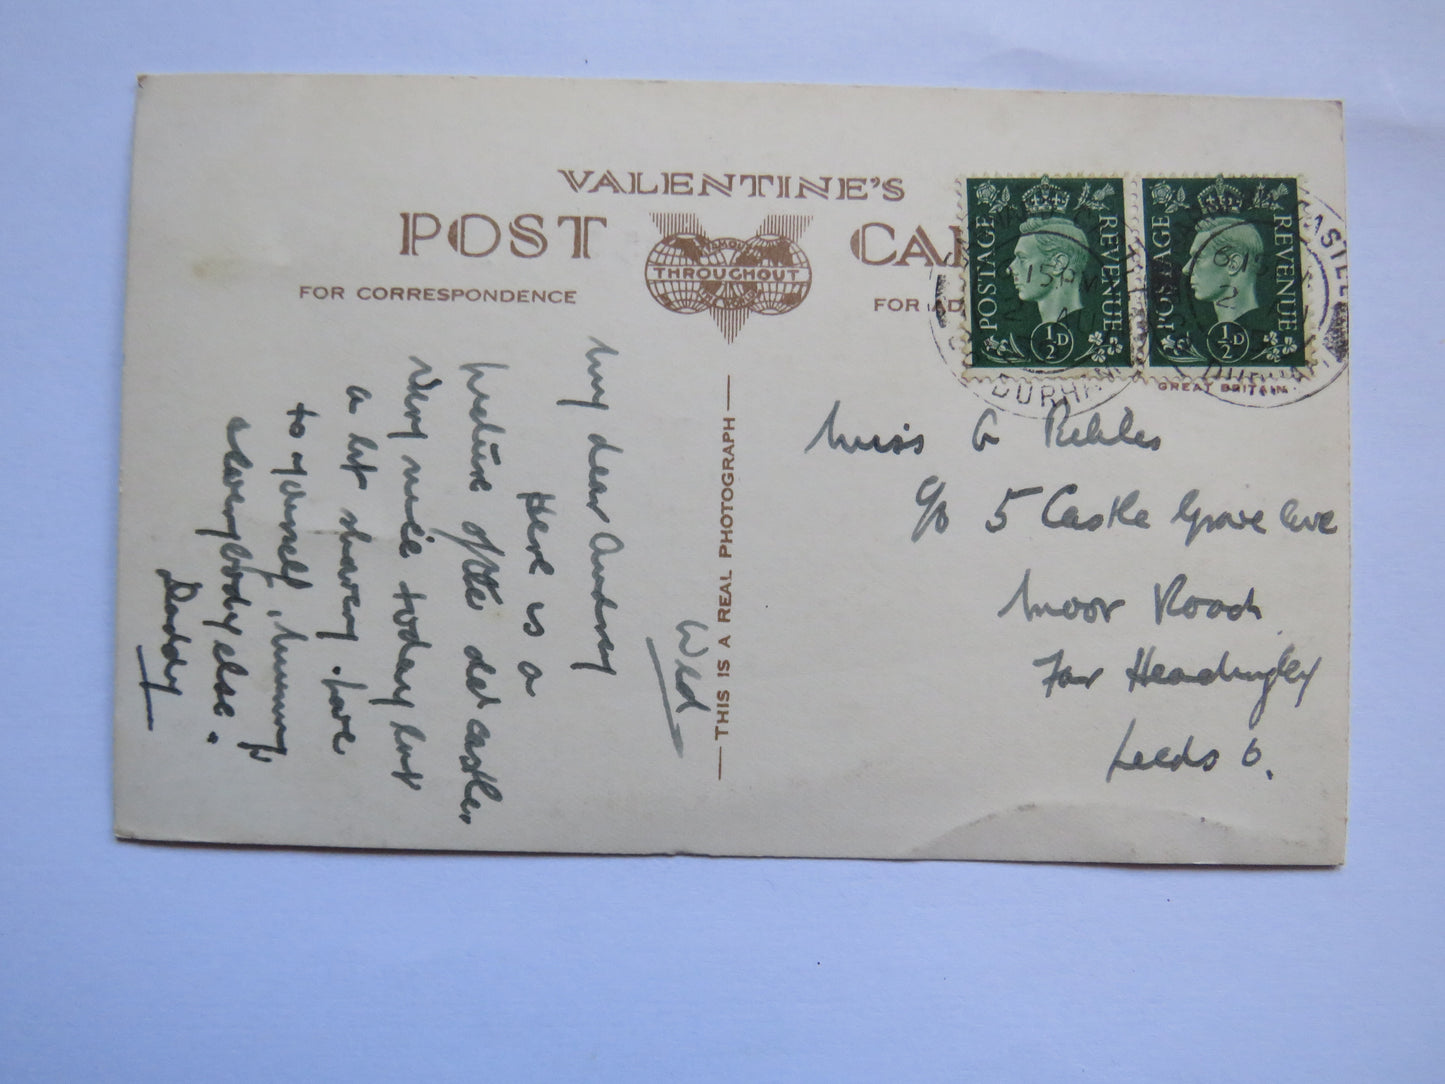 VALENTINE'S
POST CA
FOR CORRESPONDENCE
THROUGHOUT
FOR AD
POSTAGE REVENUE
½D
POSTAGE REVENUE
½D
15 PM
2
DURHAM
8.15
2
DURHAM
GREAT BRITAIN
THIS IS A REAL PHOTOGRAPH
Wed
My dear Audrey
Here is a
picture of the old castle,
Very nice today but
a bit showery. Love
to yourself, Mummy,
& everybody else.
Daddy
Miss A
c/o 5 Castle Grove Ave
Moor Road
Far Headingley
Leeds 6.